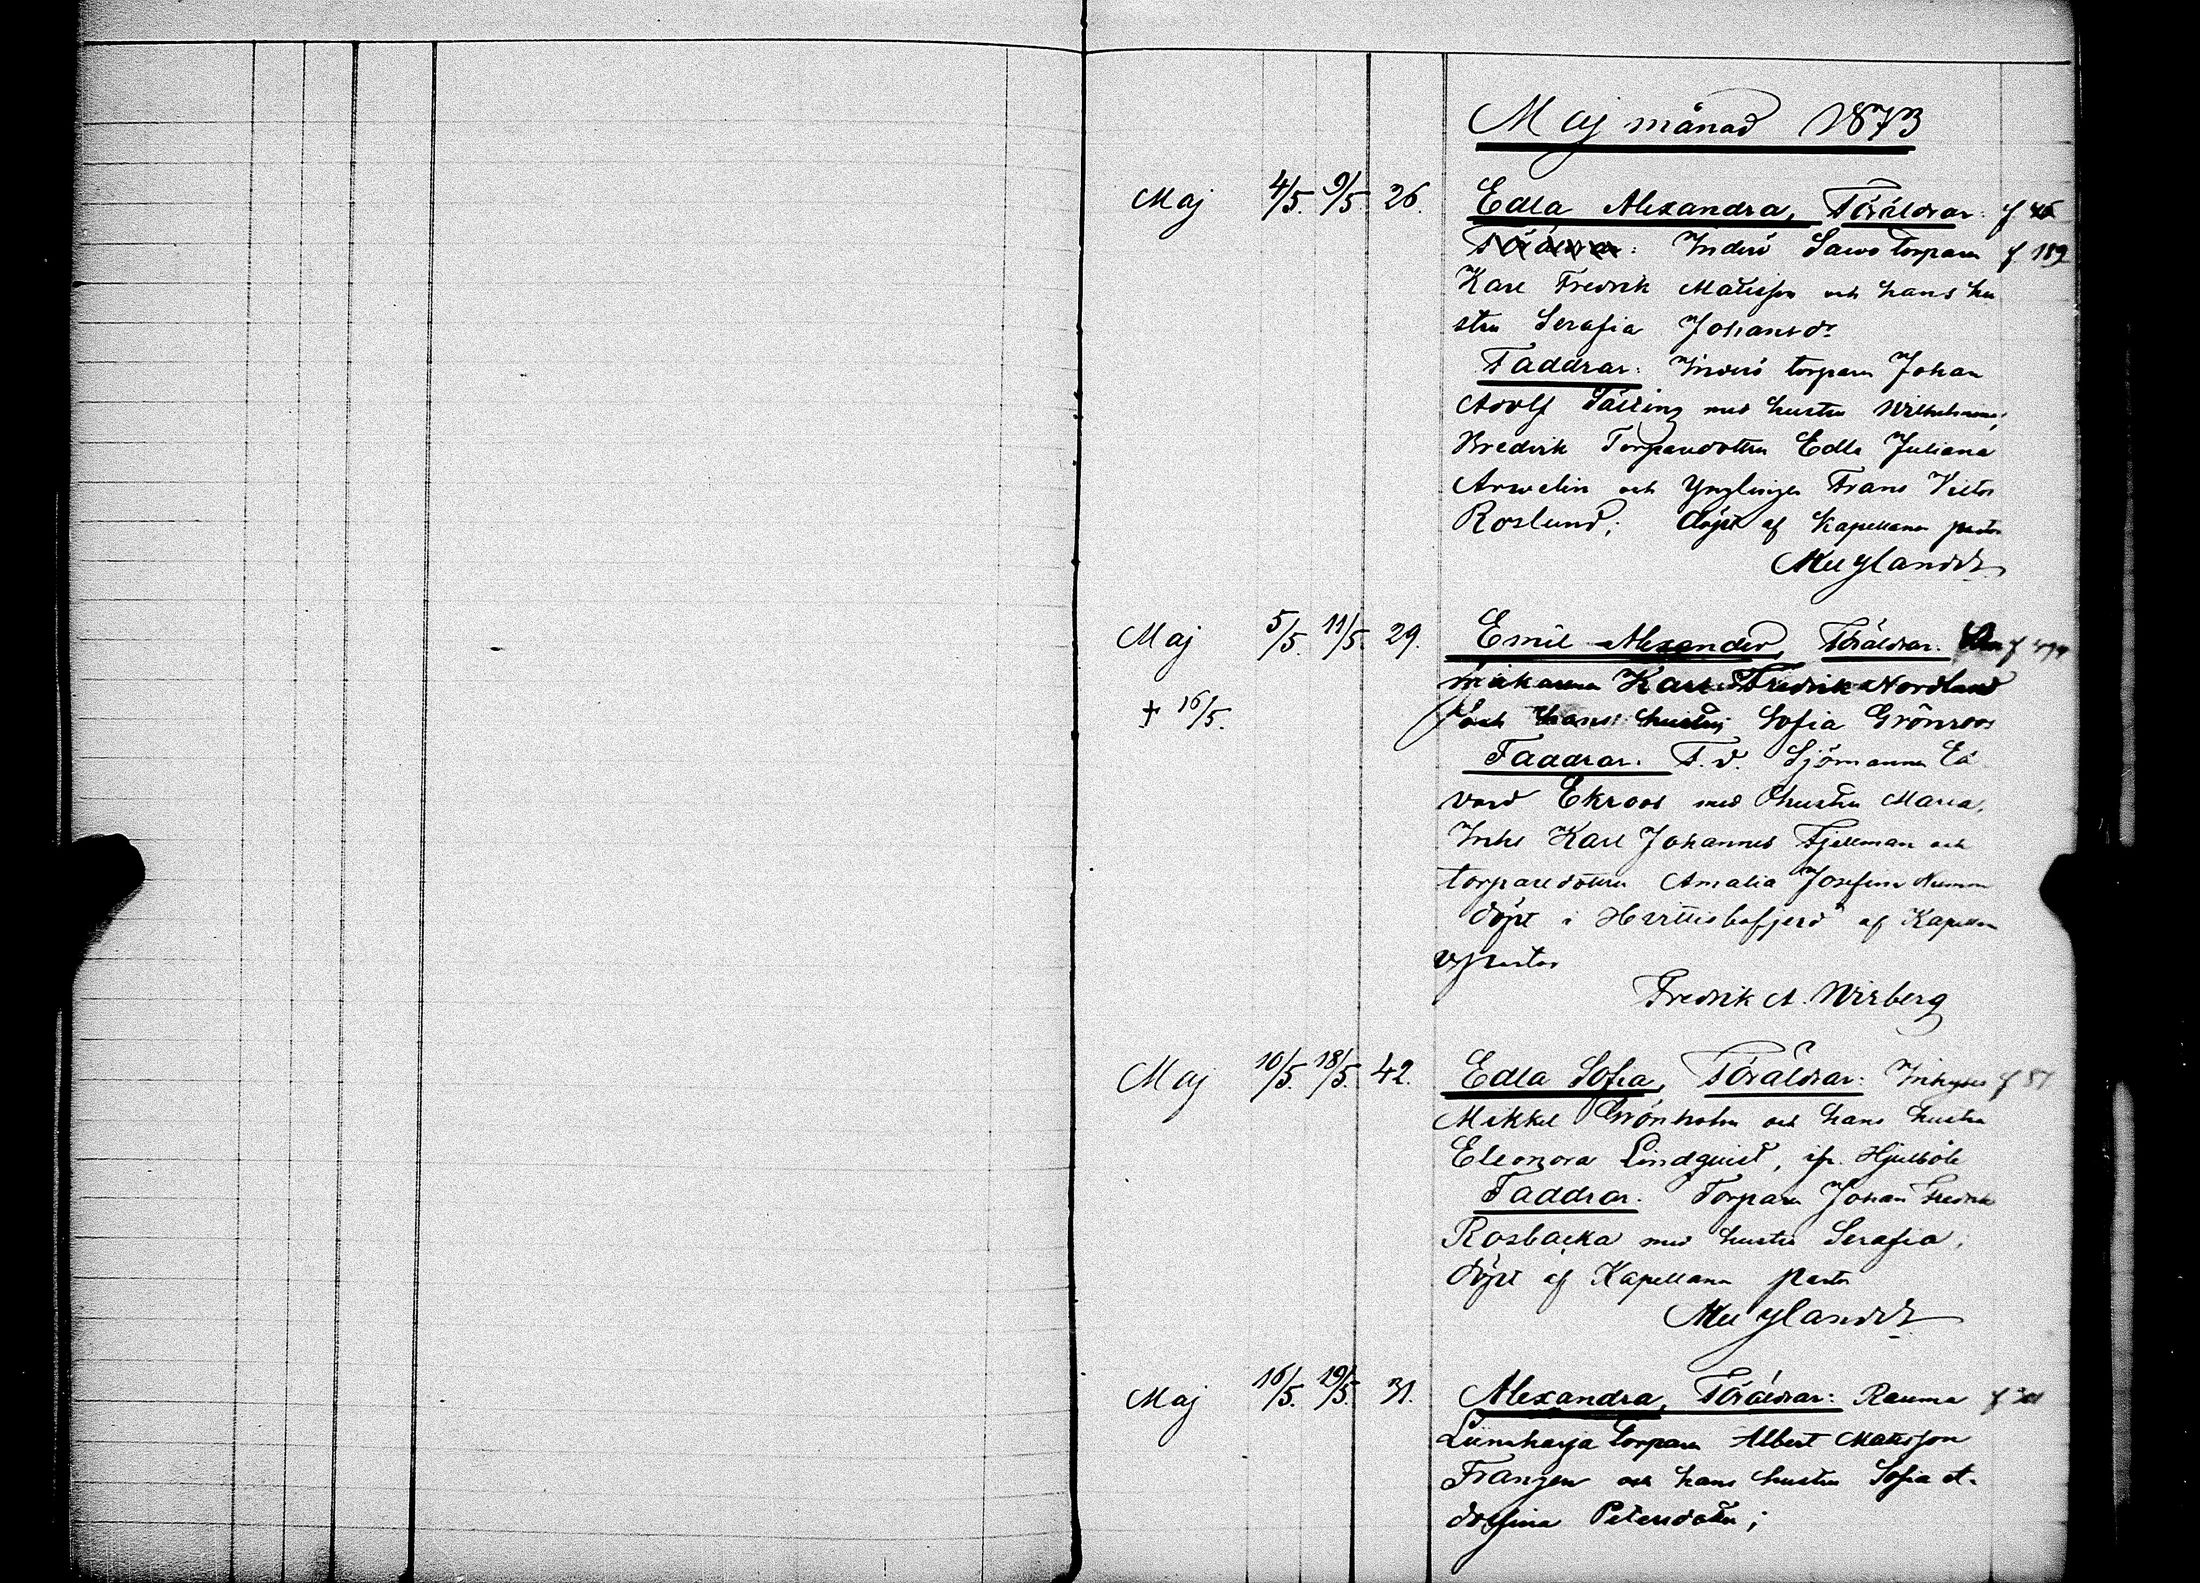 Maj månad 1873
Maj 4/5. 9/5. 26. Edla Alexandra, Föräldrar: f 46
Föräldrar: Inderö Sawo torparen f 189
Karl Fredrik Matsson och hans hu
stru Serafia Johansdr
Faddrar: Inderö torparen Johan
Adolf Tälling med hustru Wilhelmina,
Bredvik Torparedottren Edla Juliana
Arwelin och Ynglingen Frans Victor
Roslund; döpt af Kapellanen pastor
Muylandt
Maj 5/5. 11/5. 29. Emil Alexander, Föräldrar:
makaren Karl Fredrik Nordlund
† 16/5. och hans hustru Sofia Grönroos
Faddrar: F.d. Sjömannen Ed
vard Ekroos med hustru Maria,
Inhs Karl Johannes Fjellman och
torparedottren Amalia Josefina
döpt i Hvittisbofjerd af Kapellan
vpastor
Fredrik A. Wirberg
Maj 10/5. 18/5. 42. Edla Sofia, Föräldrar: Inhyses f 51
Mikkel Grönholm och hans hustru
Eleonora Lindquist, ifr. Hjulböle
Faddrar: Torparen Johan Fredrik
Rosbacka med hustru Serafia,
döpt af Kapellanen Pastor
Muylandt
Maj 16/5. 19/5. 31. Alexandra, Föräldrar: Rauma
Lünsharja torparen Albert Matsson
Franzen och hans hustru Sofia A-
dolfina Petersdotter;